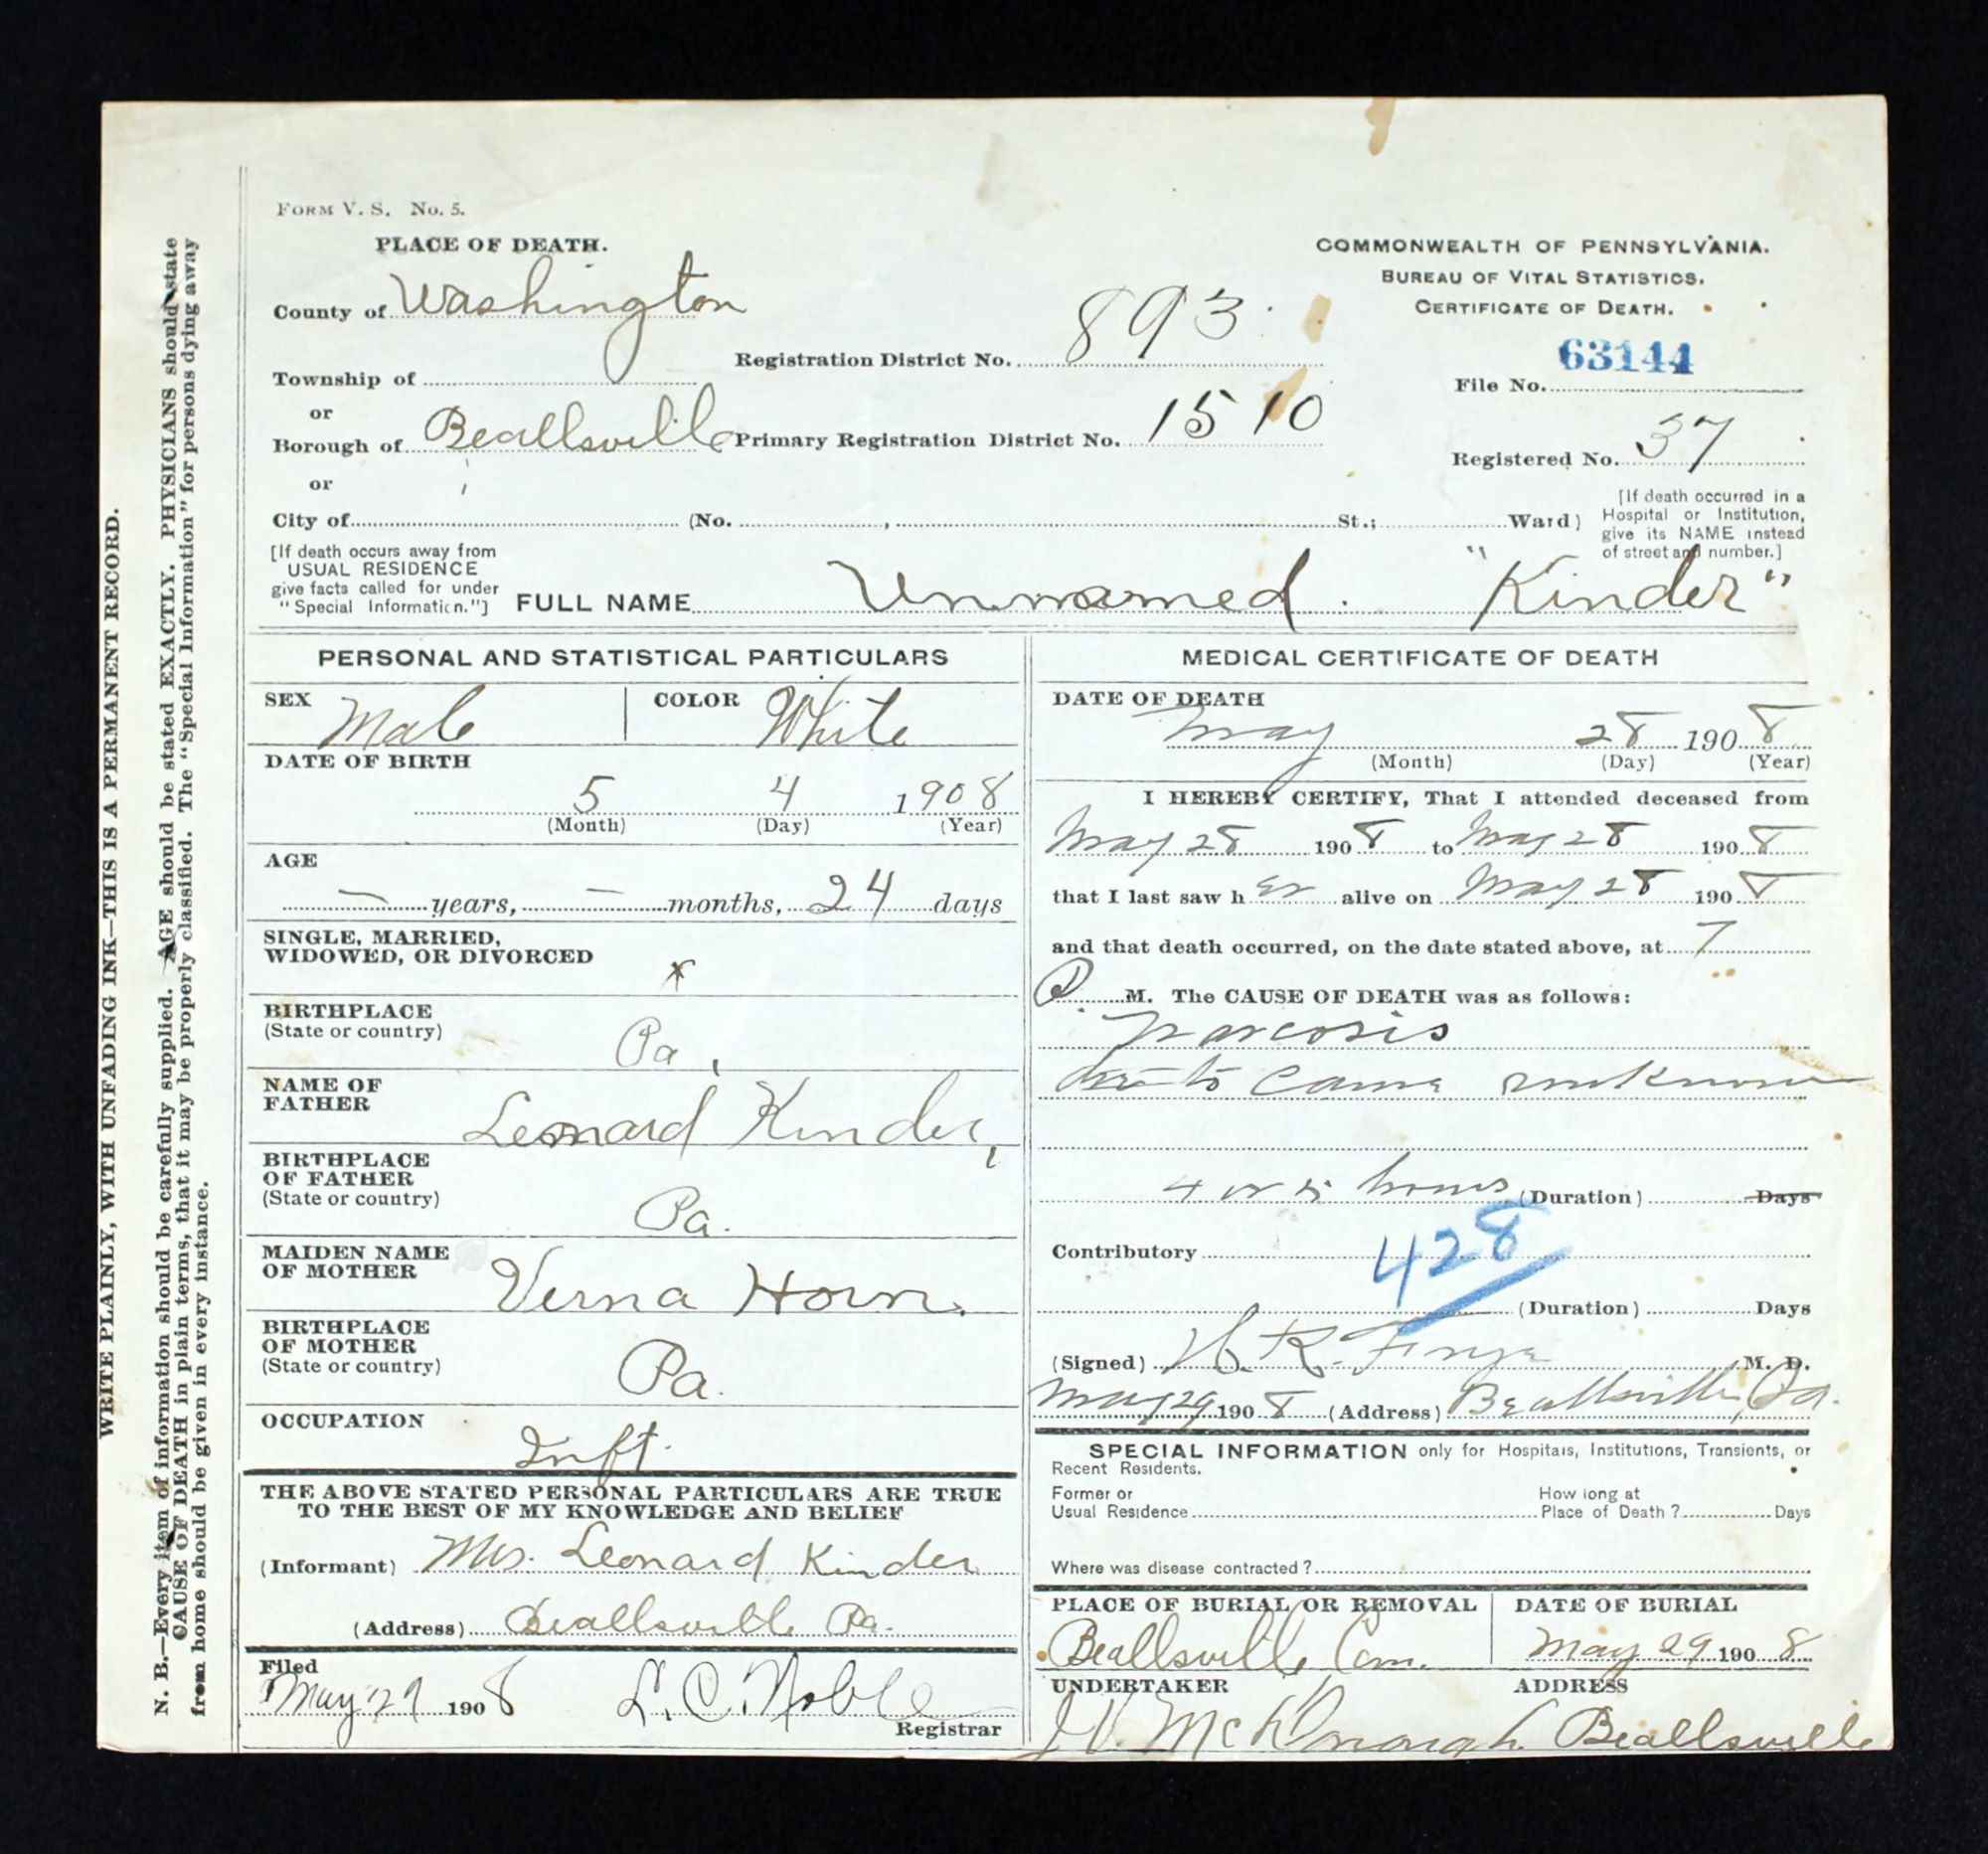 FORM V. S. No. 5.
PLACE OF DEATH.
County of Washington
Township of
or
Borough of Beallsville
or
City of (No. , St.; Ward)
COMMONWEALTH OF PENNSYLVANIA.
BUREAU OF VITAL STATISTICS.
CERTIFICATE OF DEATH.
Registration District No. 893
63144
File No.
Primary Registration District No. 1510
Registered No. 37
[If death occurred in a
Hospital or Institution,
give its NAME instead
of street and number.]
[If death occurs away from
USUAL RESIDENCE
give facts called for under
"Special Information."]
FULL NAME Unnamed. "Kinder"
PERSONAL AND STATISTICAL PARTICULARS
SEX Male COLOR White
DATE OF BIRTH
5 4 1908
(Month) (Day) (Year)
AGE
— years, — months, 24 days
SINGLE, MARRIED,
WIDOWED, OR DIVORCED x
BIRTHPLACE
(State or country) Pa.
NAME OF
FATHER Leonard Kinder,
BIRTHPLACE
OF FATHER
(State or country) Pa.
MAIDEN NAME
OF MOTHER Verna Horn.
BIRTHPLACE
OF MOTHER
(State or country) Pa.
OCCUPATION
Inft.
THE ABOVE STATED PERSONAL PARTICULARS ARE TRUE
TO THE BEST OF MY KNOWLEDGE AND BELIEF
(Informant) Mrs. Leonard Kinder
(Address) Beallsville Pa.
Filed
May 29 1908 L. C. Noble
Registrar
MEDICAL CERTIFICATE OF DEATH
DATE OF DEATH
May 28 1908
(Month) (Day) (Year)
I HEREBY CERTIFY, That I attended deceased from
May 28 1908 to May 28 1908
that I last saw h er alive on May 28 1908
and that death occurred, on the date stated above, at 7
P M. The CAUSE OF DEATH was as follows:
Narcosis
due to cause unknown
4 or 5 hours (Duration) Days
Contributory
428
(Duration) Days
(Signed) K. M. D.
May 29 1908 (Address) Beallsville, Pa.
SPECIAL INFORMATION only for Hospitals, Institutions, Transients, or
Recent Residents.
Former or
Usual Residence
How long at
Place of Death? Days
Where was disease contracted?
PLACE OF BURIAL OR REMOVAL
Beallsville Cem.
DATE OF BURIAL
May 29 1908
UNDERTAKER
McDonough
ADDRESS
Beallsville
WRITE PLAINLY, WITH UNFADING INK—THIS IS A PERMANENT RECORD.
N. B.—Every item of information should be carefully supplied. AGE should be stated EXACTLY. PHYSICIANS should state
CAUSE OF DEATH in plain terms, that it may be properly classified. The "Special Information" for persons dying away
from home should be given in every instance.